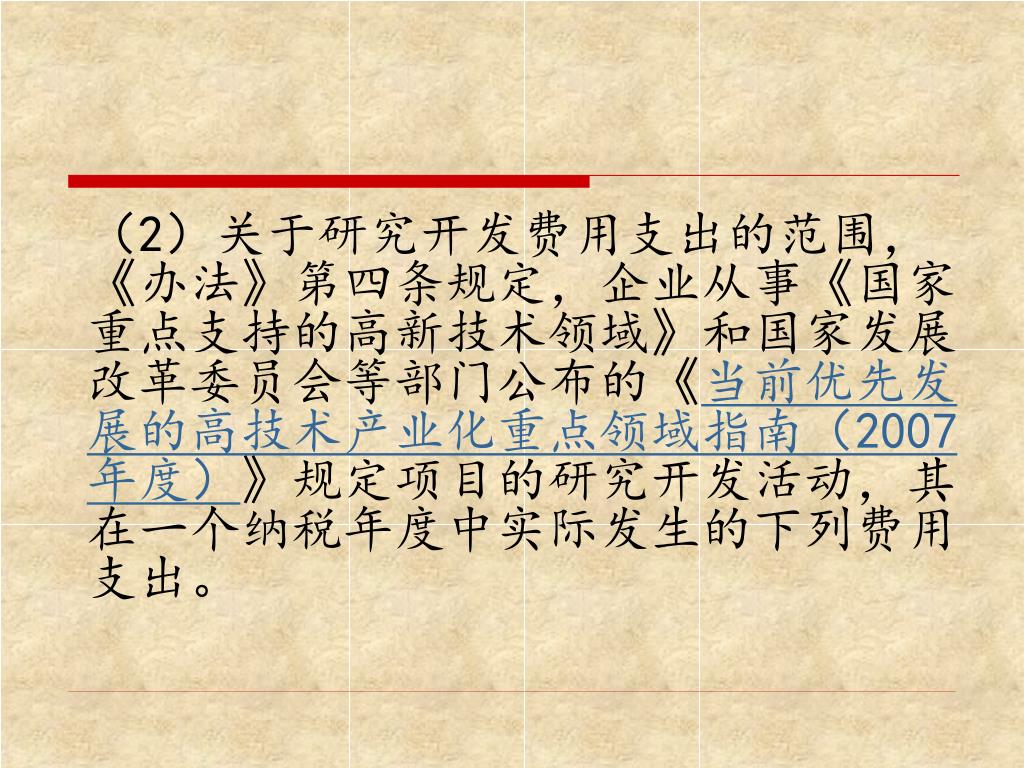 （2）关于研究开发费用支出的范围，
《办法》第四条规定，企业从事《国家
重点支持的高新技术领域》和国家发展
改革委员会等部门公布的《当前优先发
展的高技术产业化重点领域指南（2007
年度）》规定项目的研究开发活动，其
在一个纳税年度中实际发生的下列费用
支出。